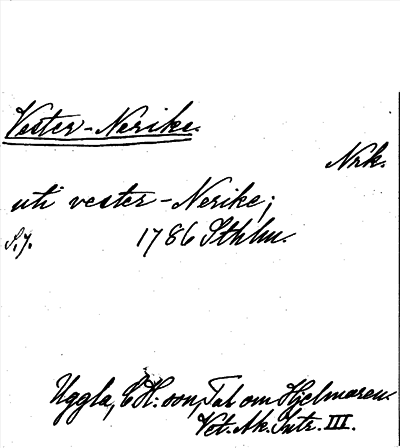 Vester-Nerike.
Nrk.
uti vester-Nerike;
S. 7. 1786 Sthlm.
Uggla, C H:son, Tal om Hjelmaren.
Vet. Ak. Intr. III.